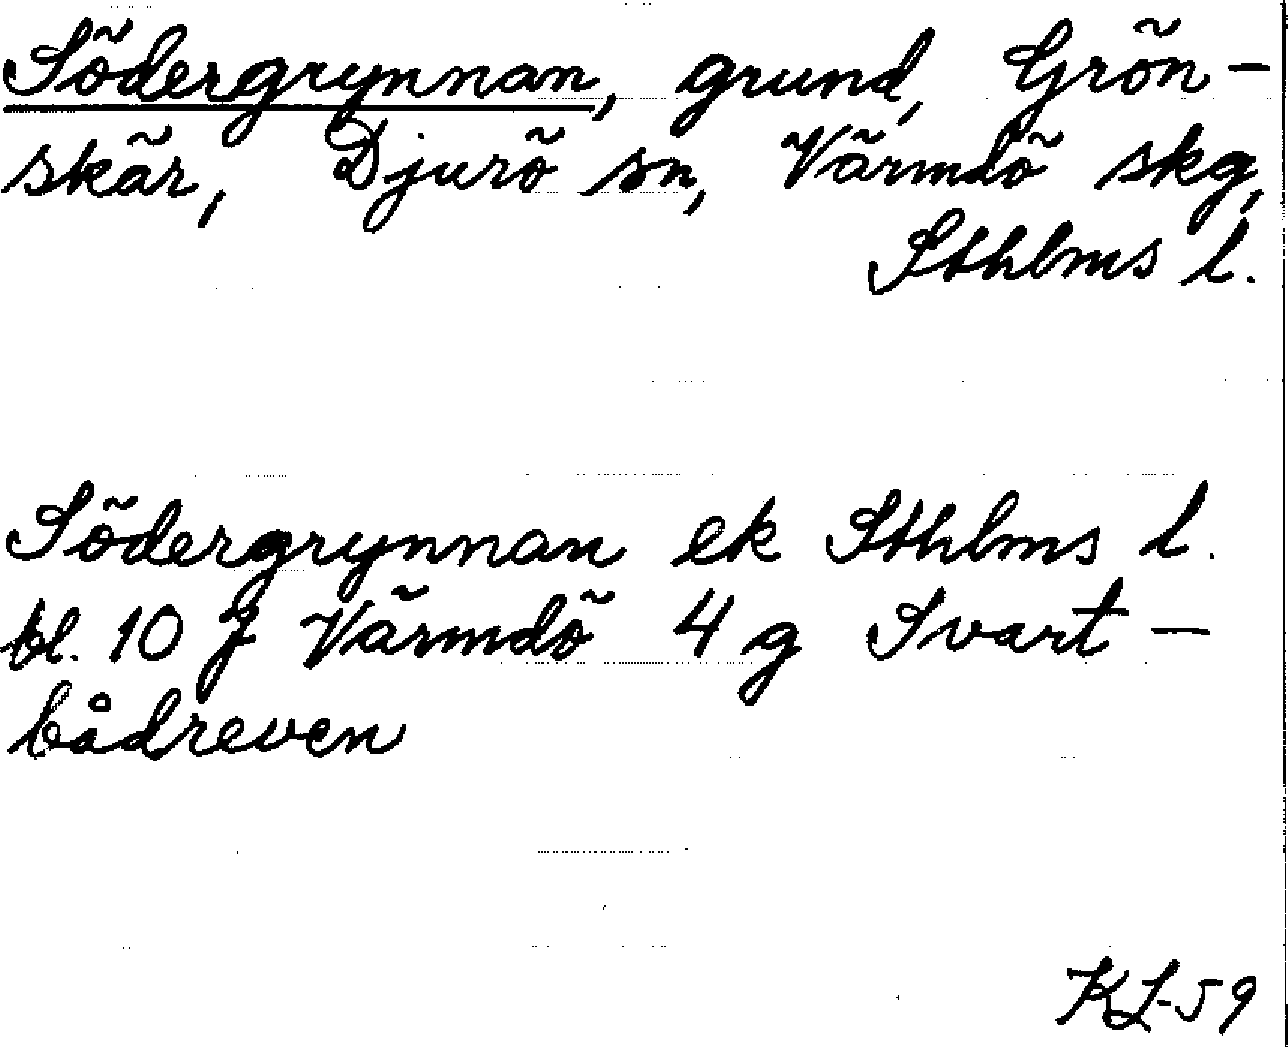 Södergrynnan, grund, Grön-
skär, Djurö sn, Värmdö skg,
Sthlms l.
Södergrynnan ek Sthlms l.
bl. 10 J Värmdö 4 g Svart-
bådreven
KL-59